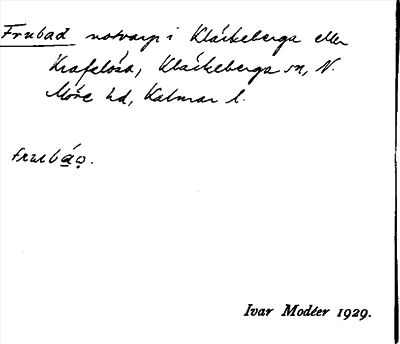 Frubad notvarp i Kläckeberga eller
Krafslösa, Kläckeberga sn, N.
Möre hd, Kalmar l.
frubạ́ọ.
Ivar Modéer 1929.